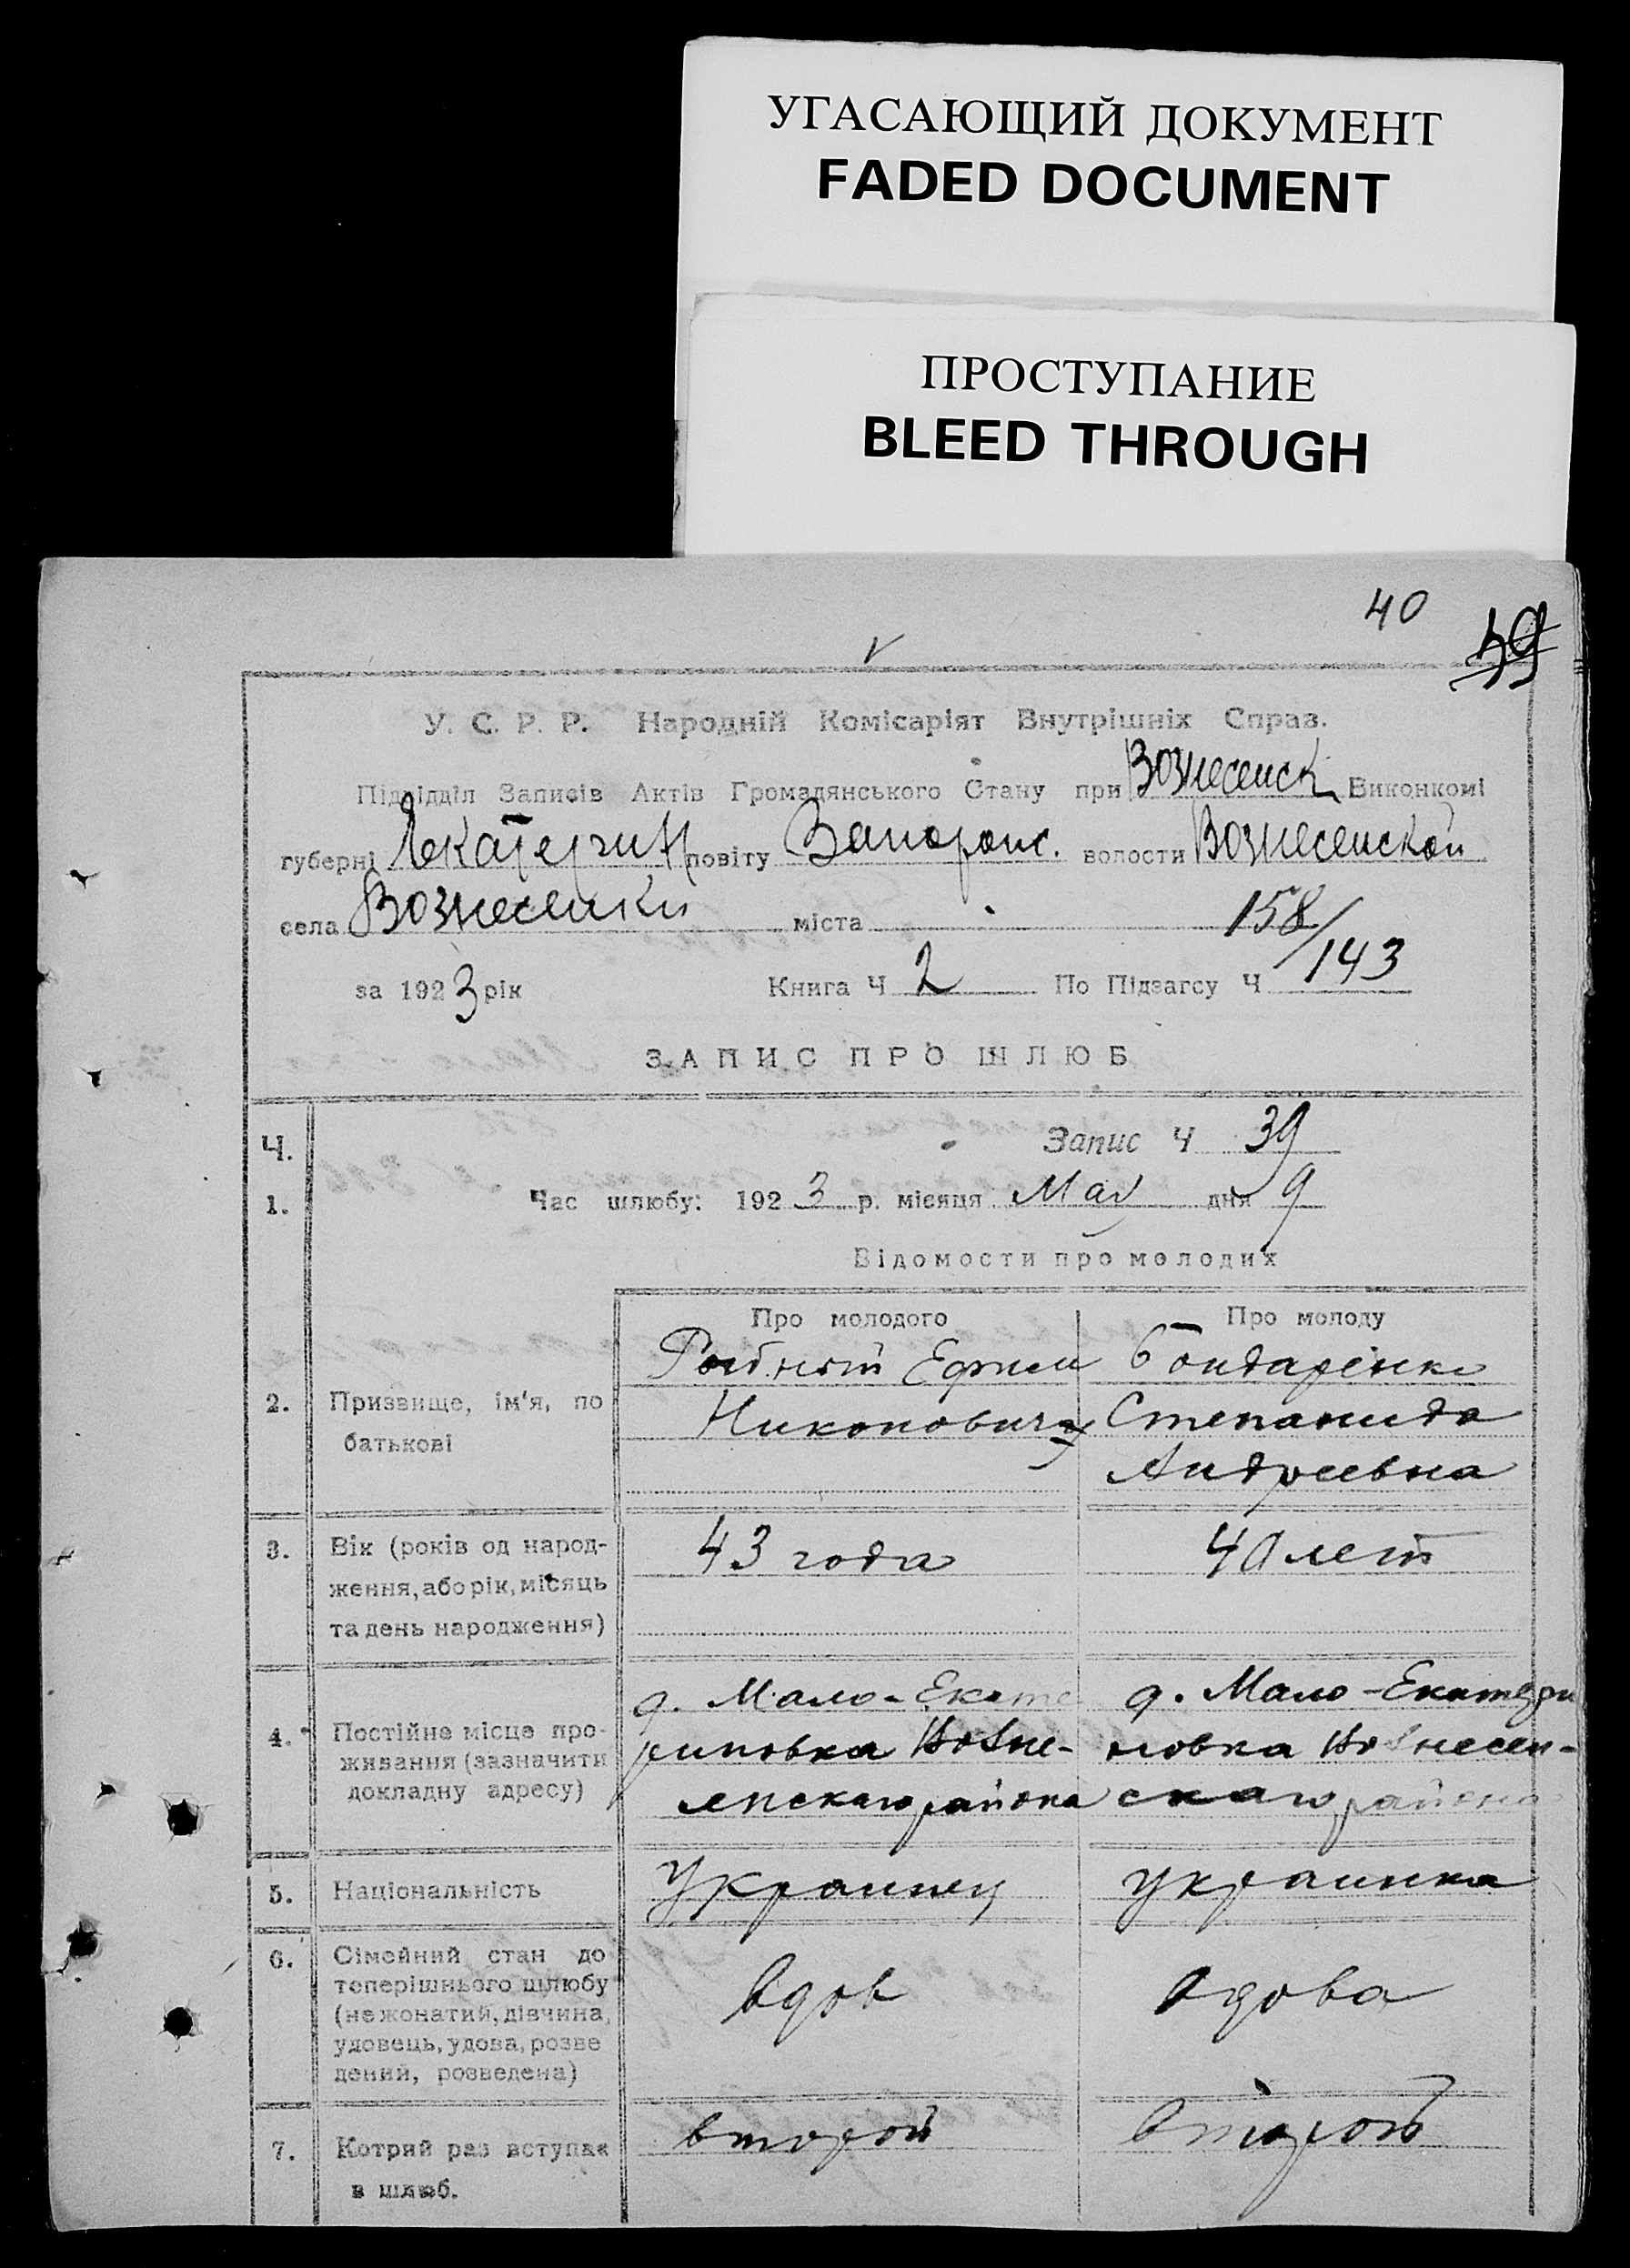 УГАСАЮЩИЙ ДОКУМЕНТ
FADED DOCUMENT
ПРОСТУПАНИЕ
BLEED THROUGH
40
39
У. С. Р. Р. Народній Комісаріят Внутрішніх Справ.
Підвідділ Записів Актів Громадянського Стану при Вознесенск Виконкомі
губерні Екатерин повіту Запорож. волости Вознесенской
села Вознесенки міста
158/143
за 1923 рік Книга Ч 2 По Підзагсу Ч
ЗАПИС ПРО ШЛЮБ
Ч. Запис Ч 39
1. Час шлюбу: 1923 р. місяця Мая дня 9
Відомости про молодих
Про молодого Про молоду
2. Призвище, ім'я, по батькові
Ефим
Никонович
Бондаренко
Степанида
Андреевна
3. Вік (років од народ-
ження, або рік, місяць
та день народження)
43 года
40 лет
4. Постійне місце про-
живання (зазначити
докладну адресу)
д. Мало-Екате
риновка Возне-
сенскаго района
д. Мало-Екатери
новка Вознесен-
скаго района
5. Національність
Украинец
украинка
6. Сімейний стан до
теперішнього шлюбу
(нежонатий, дівчина,
удовець, удова, розве
дений, розведена)
вдов
вдова
7. Котрий раз вступає
в шлюб.
второй
второй